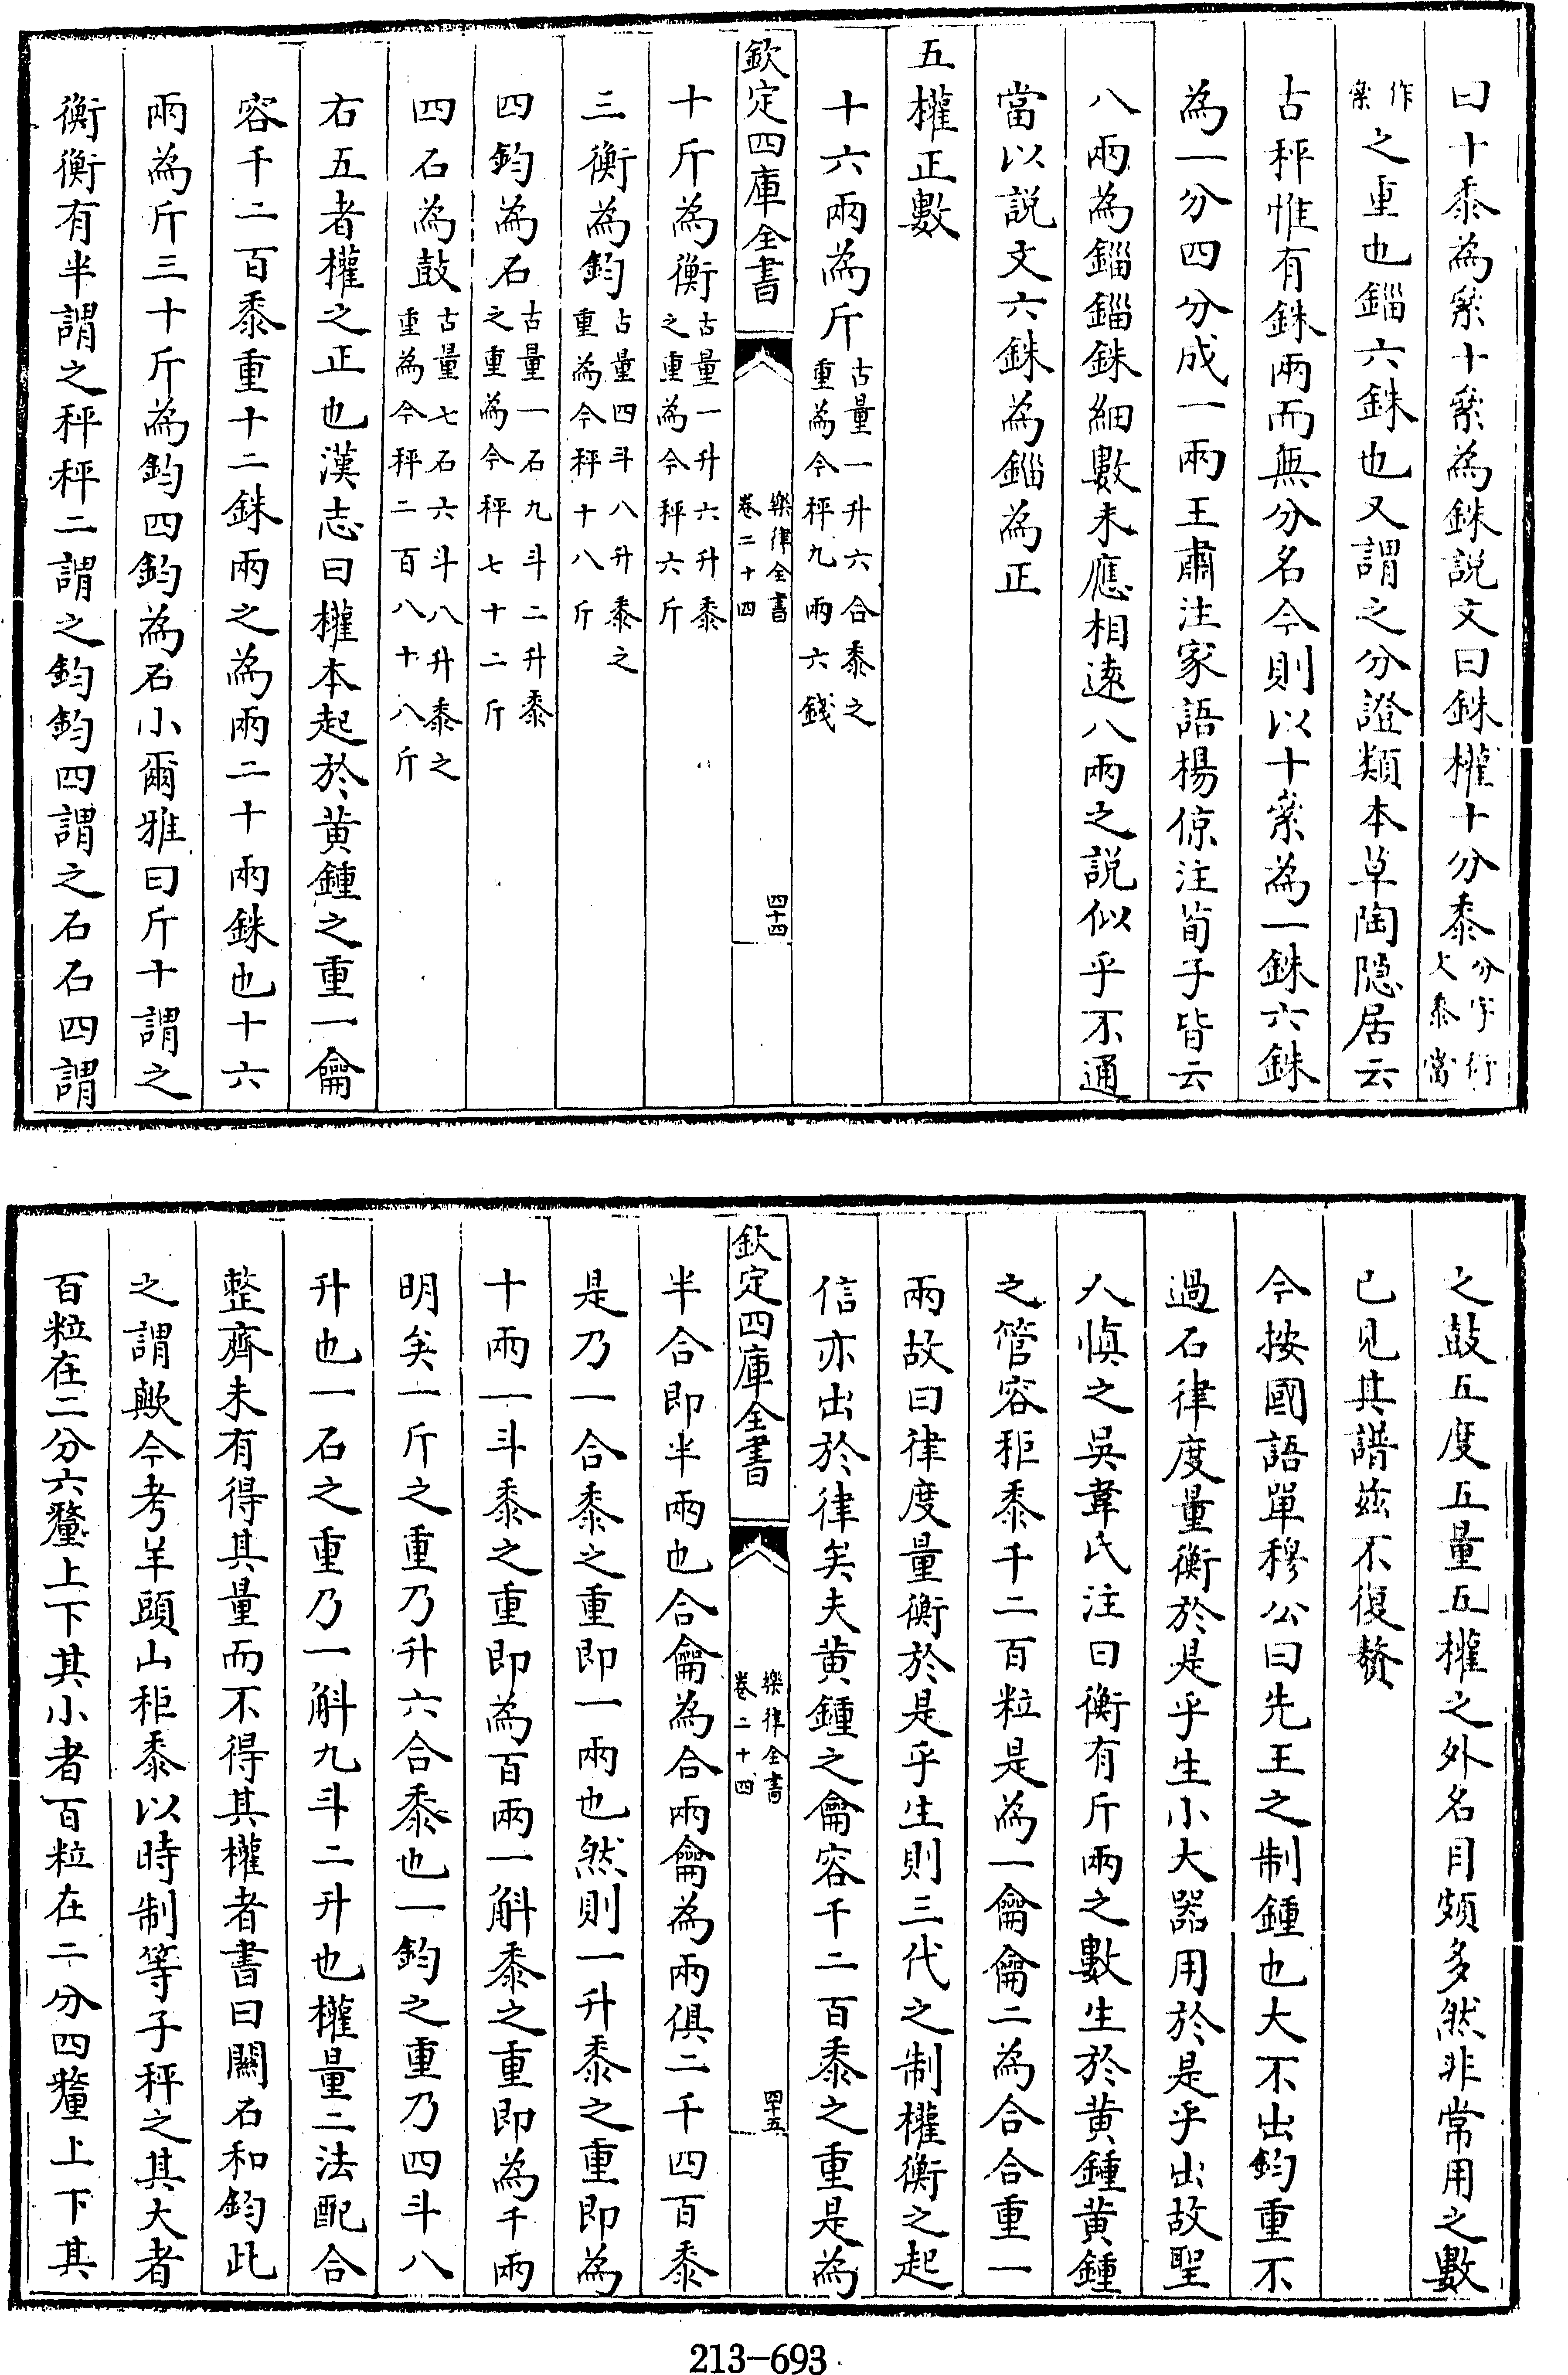 曰十黍為絫十絫為銖説文曰銖權十分黍分字衍文黍當
作絫之重也錙六銖也又謂之分證類本草陶隐居云
古秤惟有銖兩而無分名今則以十絫為一銖六銖
為一分四分成一兩王肅注家語楊倞注荀子皆云
八兩為錙錙銖細數未應相遠八兩之説似乎不通
當以説文六銖為錙為正
五權正數
十六兩為斤古量一升六合黍之重為今秤九兩六錢
欽定四庫全書
樂律全書
卷二十四
四十四
十斤為衡古量一斗六升黍之重為今秤六斤
三衡為鈞古量四斗八升黍之重為今秤十八斤
四鈞為石古量一石九斗二升黍之重為今秤七十二斤
四石為鼓古量七石六斗八升黍之重為今秤二百八十八斤
右五者權之正也漢志曰權本起於黄鍾之重一龠
容千二百黍重十二銖兩之為兩二十兩銖也十六
兩為斤三十斤為鈞四鈞為石小爾雅曰斤十謂之
衡衡有半謂之秤秤二謂之鈞鈞四謂之石石四謂
之鼓五度五量五權之外名目頗多然非常用之數
已见其譜兹不復贅
今按國語單穆公曰先王之制鍾也大不出鈞重不
過石律度量衡於是乎生小大器用於是乎出故聖
人慎之吳韋氏注曰衡有斤兩之數生於黄鍾黄鍾
之管容秬黍千二百粒是為一龠龠二為合合重一
兩故曰律度量衡於是乎生則三代之制權衡之起
信亦出於律矣夫黄鍾之龠容千二百黍之重是為
欽定四庫全書
樂律全書
卷二十四
四十五
半合即半兩也合龠為合兩龠為兩俱二千四百黍
是乃一合黍之重即一兩也然則一升黍之重即為
十兩一斗黍之重即為百兩一斛黍之重即為千兩
明矣一斤之重乃升六合黍也一鈞之重乃四斗八
升也一石之重乃一斛九斗二升也權量二法配合
整齊未有得其量而不得其權者書曰關石和鈞此
之謂歟今考羊頭山秬黍以時制等子秤之其大者
百粒在二分六釐上下其小者百粒在二分四釐上下其
213-693